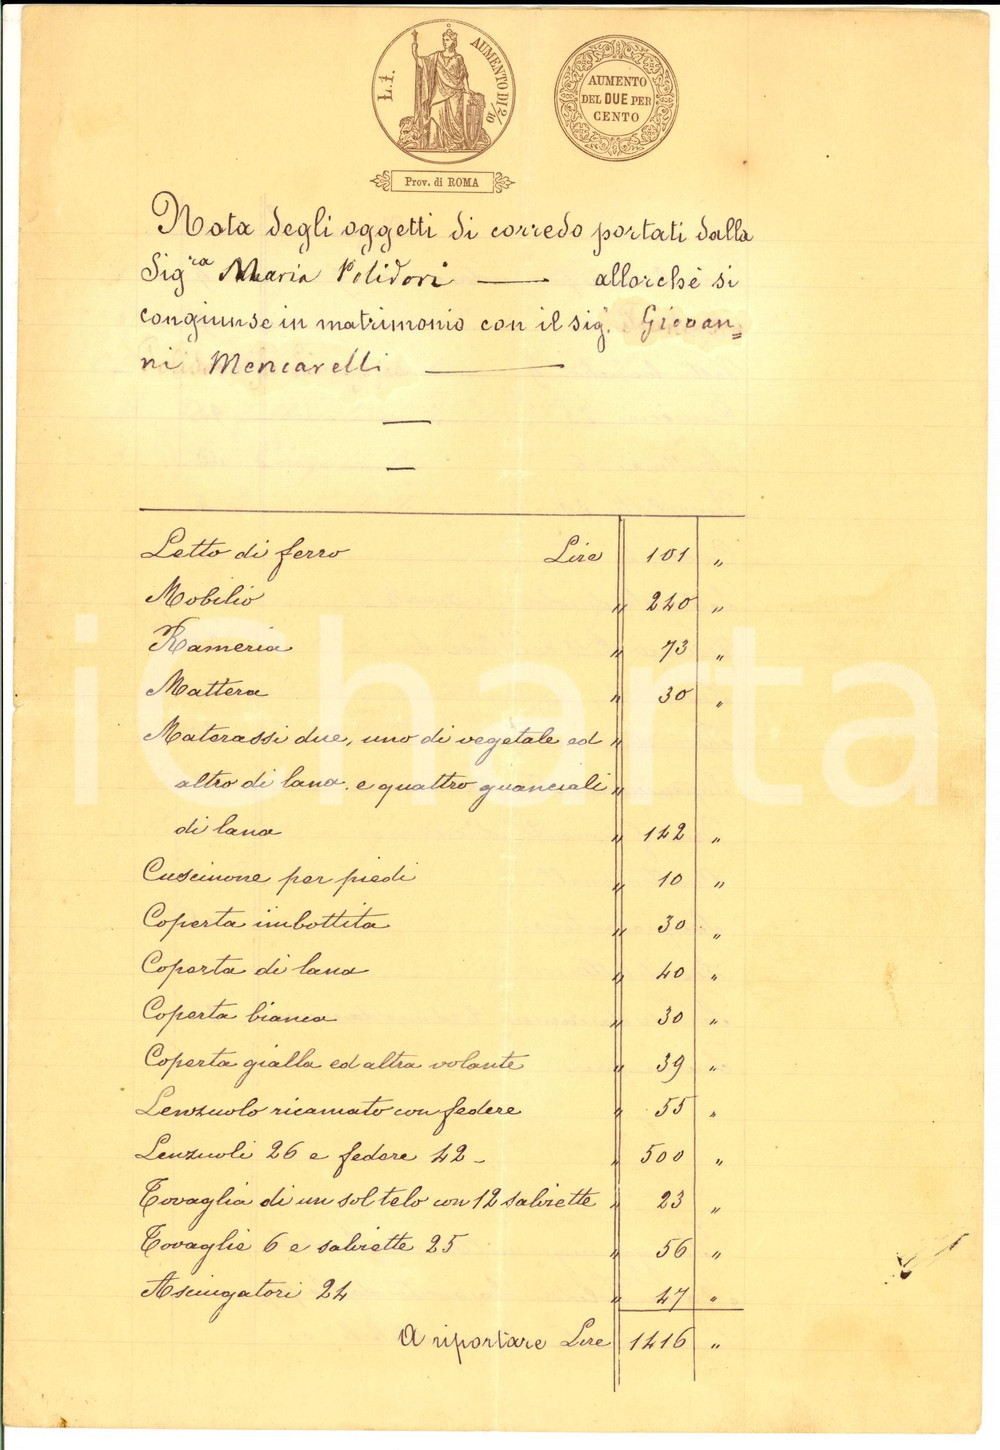 L. 1.
AUMENTO DI 2/10
AUMENTO
DEL DUE PER
CENTO
Prov. di ROMA
Nota degli oggetti di corredo portati dalla
Sig.ra Maria Polidori — allorchè si
congiunse in matrimonio con il sig. Giovan=
ni Mencarelli —
Letto di ferro Lire 101 "
Mobilio " 240 "
Rameria " 73 "
Mattera " 30 "
Materassi due, uno di vegetale ed "
altro di lana. e quattro guanciali "
di lana " 142 "
Cuscinone per piedi " 10 "
Coperta imbottita " 30 "
Coperta di lana " 40 "
Coperta bianca " 30 "
Coperta gialla ed altra volante " 39 "
Lenzuolo ricamato con federe " 55 "
Lenzuoli 26 e federe 42 - " 500 "
Tovaglia di un sol telo con 12 salviette " 23 "
Tovaglie 6 e salviette 25 " 56 "
Asciugatori 24 " 47 "
A riportare Lire 1416 "
iCharta